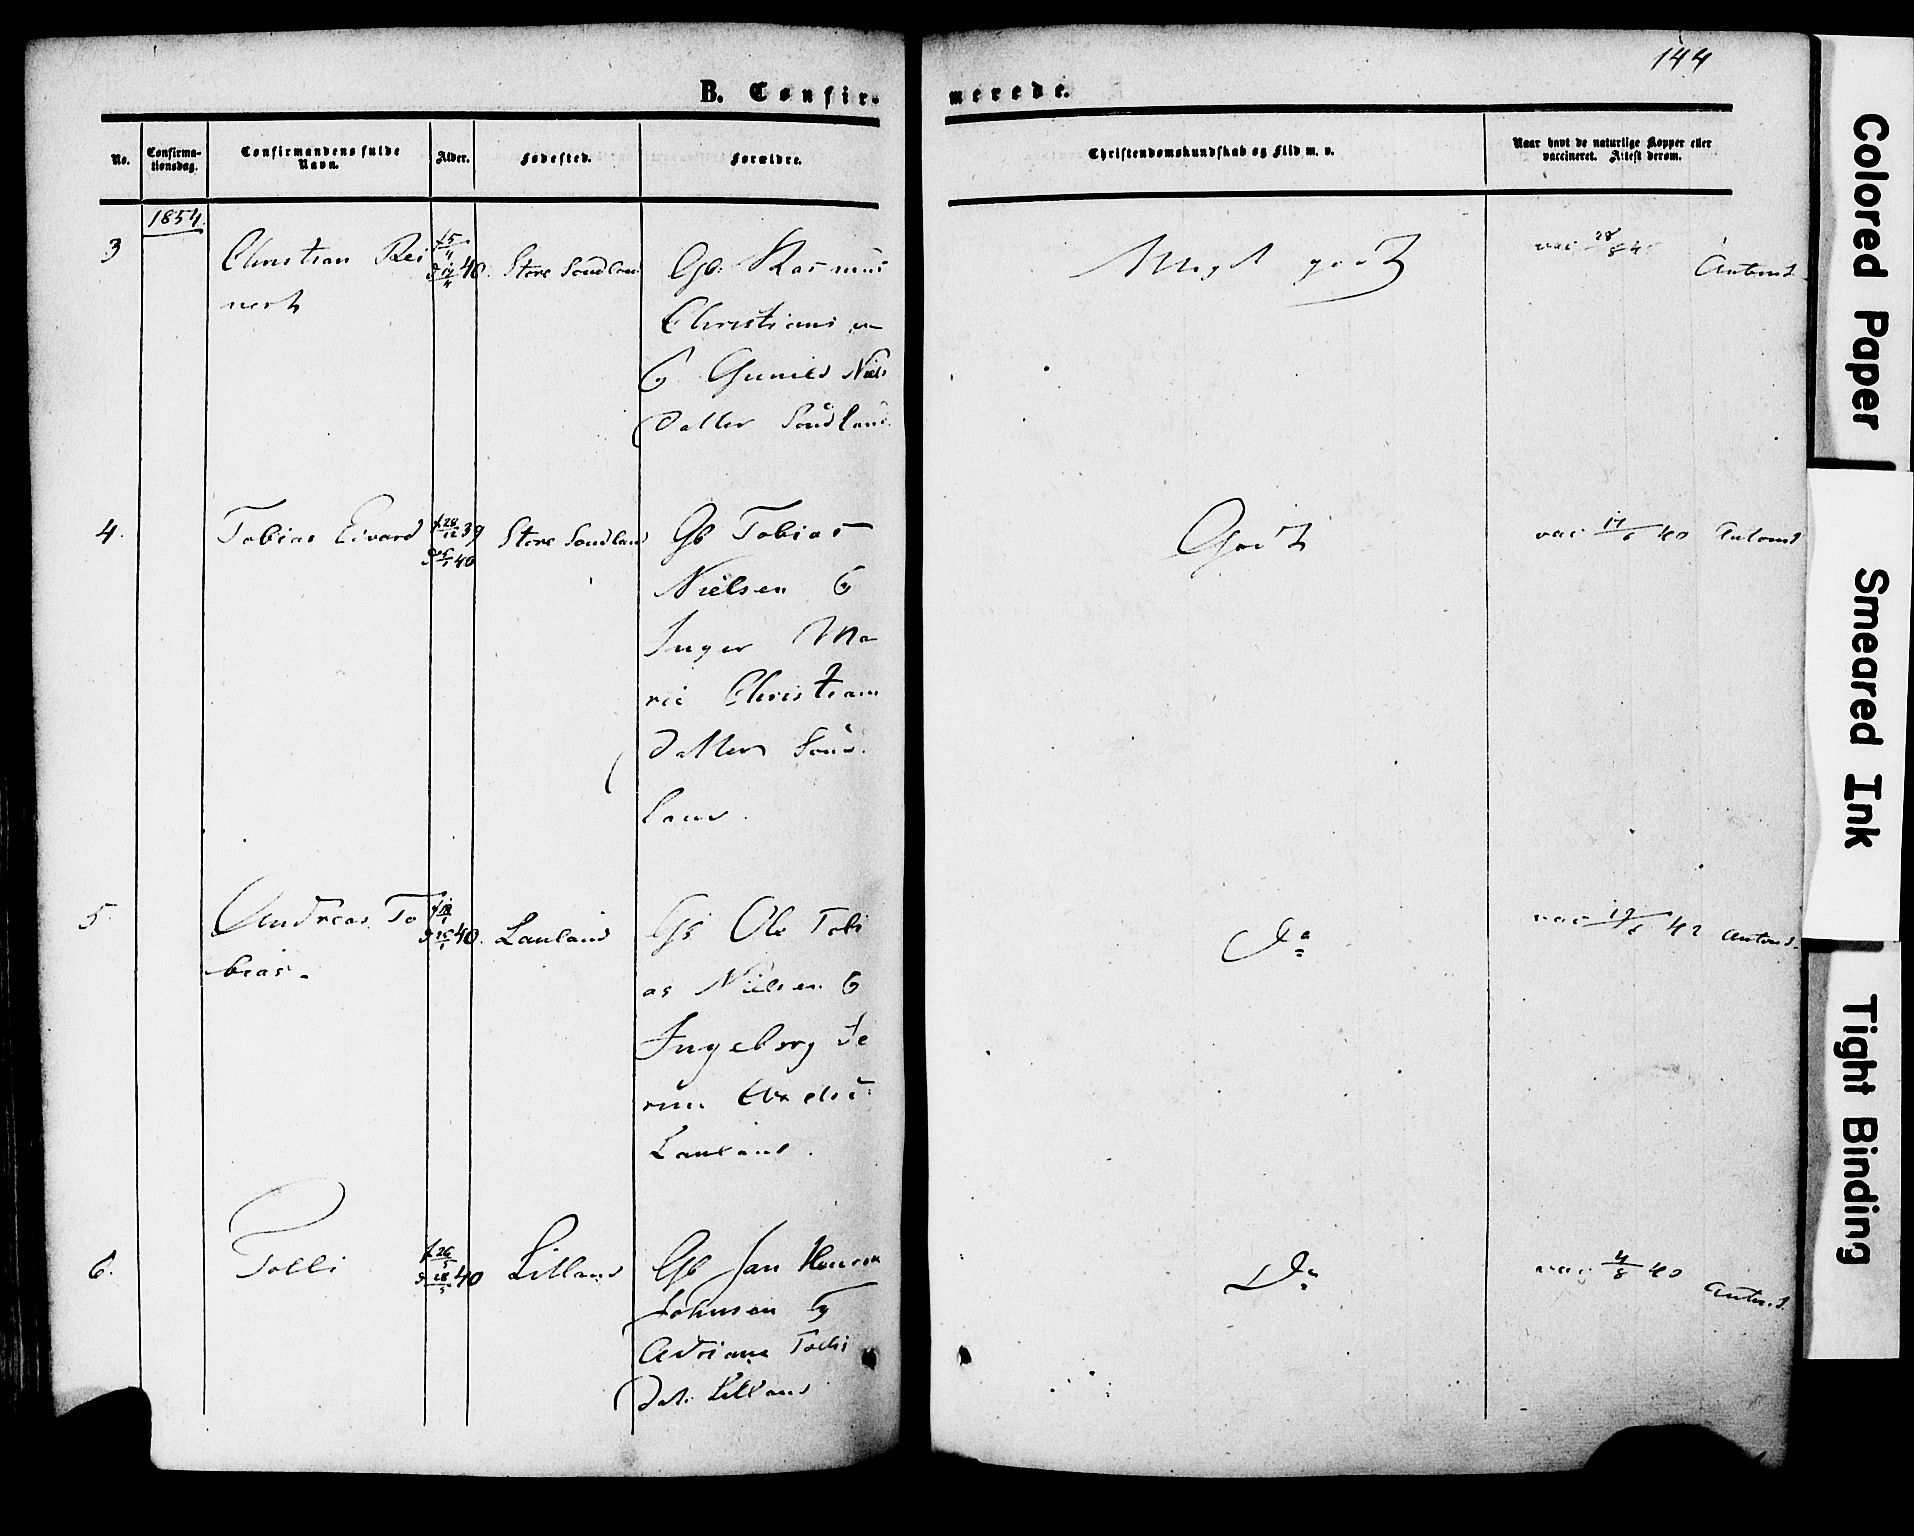 144
B. Confir-
merede.
No.
Confirma-
tionsdag.
Confirmandens fulde
Navn.
Alder.
Fødested.
Forældre.
Christendomskundskab og Flid m. v.
Naar havt de naturlige Kopper eller
vaccineret. Attest derom.
1854.
3
Christian Rei
nert
40.
Store Sondland
Gb. Rasmus
Christians
Gunild Niels
Datter Sondland
Meget godt
vac
4.
Tobias Edvard
f 28/12 39
40
Store Sondland
Gb Tobias
Nielsen
Inger Ma
rie Christians
Datter Sond
land.
Godt
vac 40
5
Andreas To
bias.
40.
Lauland
Gb Ole Tobi
as Nielsen
Ingeborg Se
rine
Lauland.
Do
vac 42
6.
Tolli
f 26/5
d 28/5 40
Lilland
Gb Jan Henrik
Johnsen
Adriane Tollis
Dat. Lilland
Do
vac 4/8 40
Colored Paper
Smeared Ink
Tight Binding